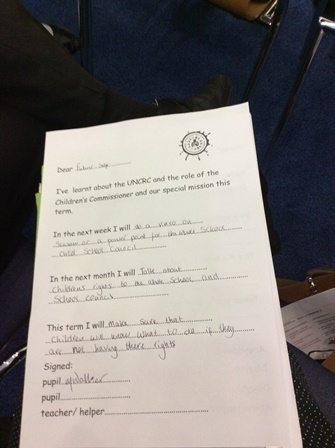 Dear Future Self
I've learnt about the UNCRC and the role of the
Children's Commissioner and our special mission this
term.
In the next week I will do a
or a power point for the whole School
and School Council
In the next month I will Talk about
Childrens rights to the whole School and
School council
This term I will Make sure that
Children will know what to do if they
are not having there rights
Signed:
pupil
pupil
teacher/ helper